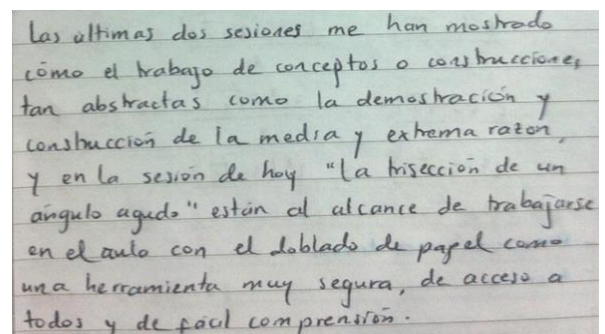 Las últimas dos sesiones me han mostrado
cómo el trabajo de conceptos o construcciones
tan abstractas como la demostración y
construcción de la media y extrema razón,
y en la sesión de hoy "la trisección de un
ángulo agudo" están al alcance de trabajarse
en el aula con el doblado de papel como
una herramienta muy segura, de acceso a
todos y de fácil comprensión.